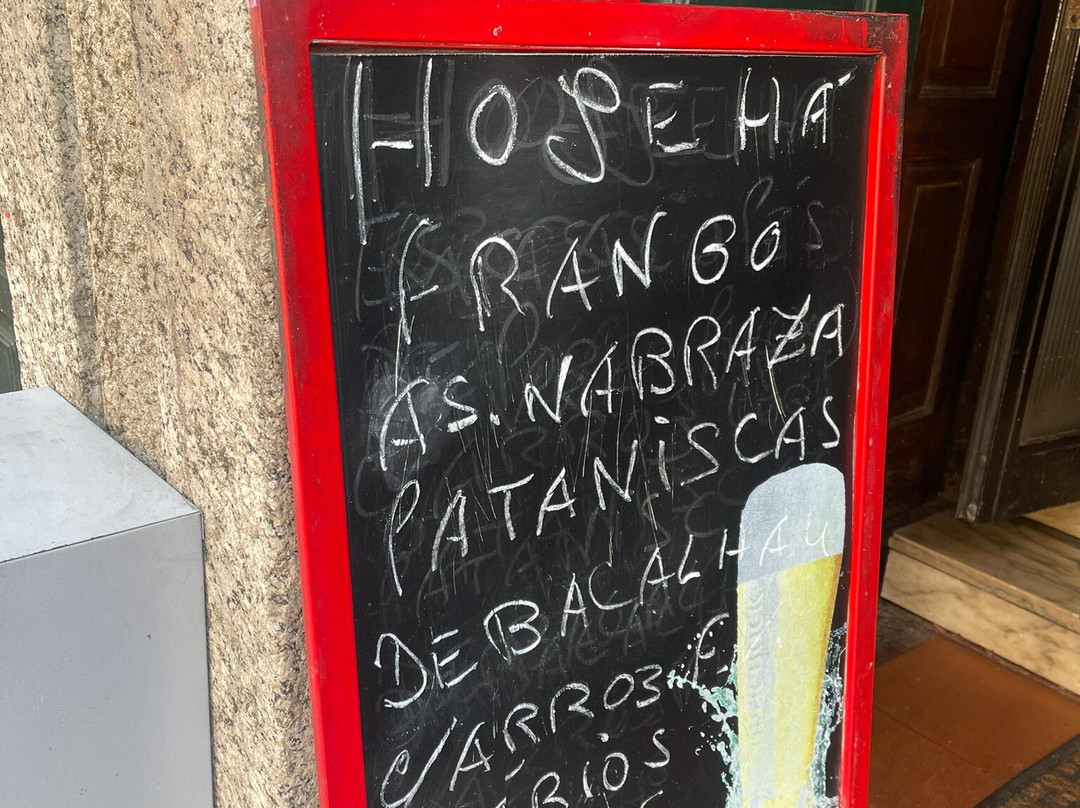 HOJE HÁ
FRANGO
AS. NABRAZA
PATANISCAS
DE BACALHAU
C/ARROZ